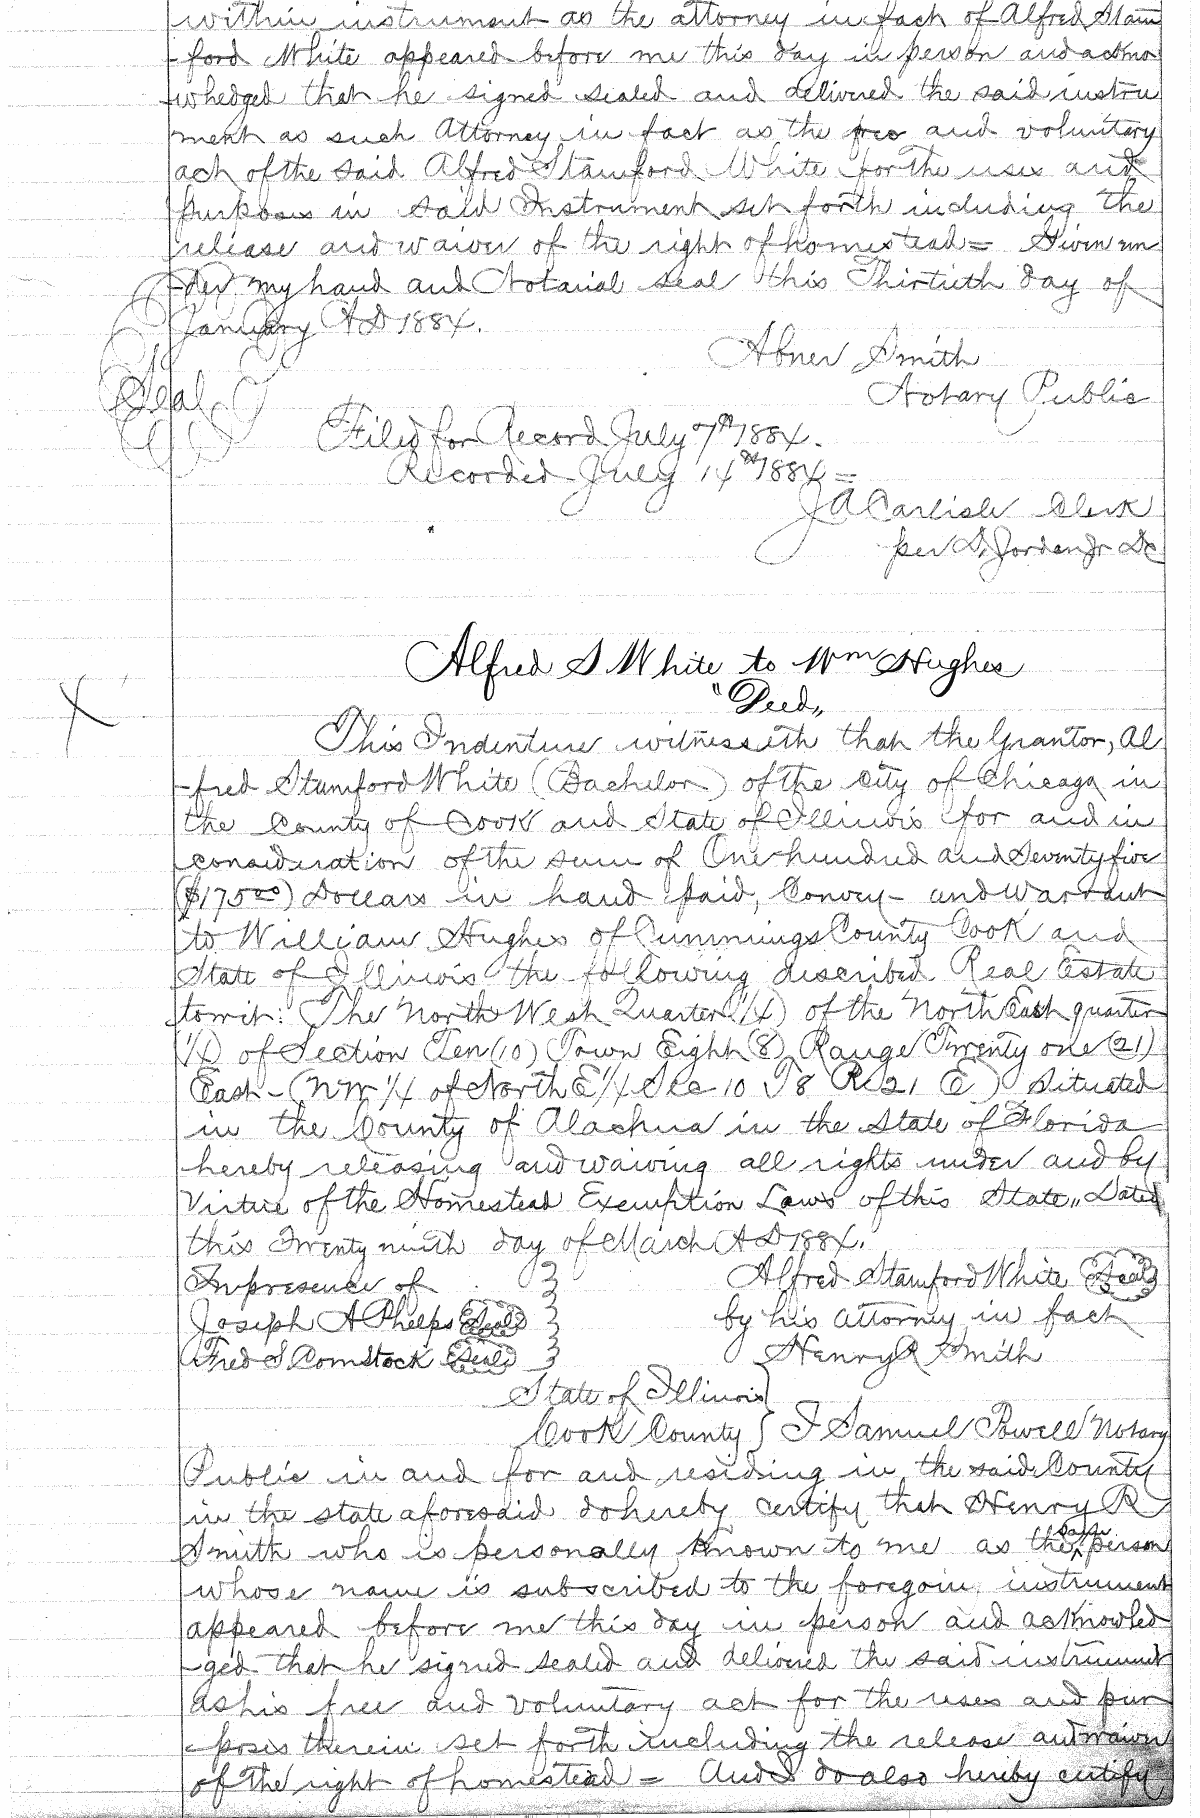 within instrument as the attorney in fact of Alfred Stam
ford White appeared before me this day in person and ackno
whedged that he signed sealed and delivered the said instru
ment as such Attorney in fact as the free and voluntary
act of the said Alfred Stamford White for the uses and
purposes in said Instrument set forth including the
release and waiver of the right of homestead = Given un
der my hand and Notarial seal this Thirtieth day of
January AD 1884.
Abner Smith
Seal
Notary Public
Filed for Record July 7th 1884.
Recorded July 14th 1884 =
JA Carlisle Clerk
per D. Jordan Jr DC
Alfred S White to Wm Hughes
"Deed"
X
This Indenture witnesseth that the Grantor, Al
-fred Stamford White (Bachelor) of the city of Chicago in
the County of Cook and State of Illinois for and in
consideration of the sum of One hundred and Seventy five
($175.00) Dollars in hand paid, Convey - and Warrant
to William Hughes of Cummings County Cook and
State of Illinois the following described Real Estate
towit: The North West Quarter (1/4) of the North East quarter
(1/4) of Section Ten (10) Town Eight (8) Range Twenty one (21)
East - (NW 1/4 of North E 1/4 Sec 10 T8 R 21 E) situated
in the County of Alachua in the State of Florida
hereby releasing and waiving all rights under and by
Virtue of the Homestead Exemption Laws of this State" Dated
this Twenty ninth day of March AD 1884.
In presence of
Alfred Stamford White Seal
Joseph A Phelps Seal
by his attorney in fact
Fred S Comstock Seal
Henry R Smith
State of Illinois
Cook County } I Samuel Powell Notary
Public in and for and residing in the said County
in the state aforesaid do hereby certify that Henry R
Smith who is personally known to me as the same person
whose name is subscribed to the foregoin instrument
appeared before me this day in person and acknowled
-ged that he signed sealed and delivered the said instrument
as his free and voluntary act for the uses and pur
-poses therein set forth including the release and waiver
of the right of homestead = And I do also hereby certify